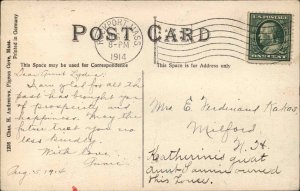 POST CARD
ROCKPORT, MASS.
8-PM
1914
This Space may be used for Correspondence
This Space is for Address.
Dear Aunt Lydia,
I am glad for all the
past has brought you
of prosperity and
happiness. May the
future treat you no
less kindly.
With love,
Aug. 5, 1914
Mrs. E. Ferdinand
Milford
N. H.
Katherine's great
Aunt Fannie owned
this house.
1298 Chas. H. Andrews, Pigeon Cove, Mass.
Printed in Germany